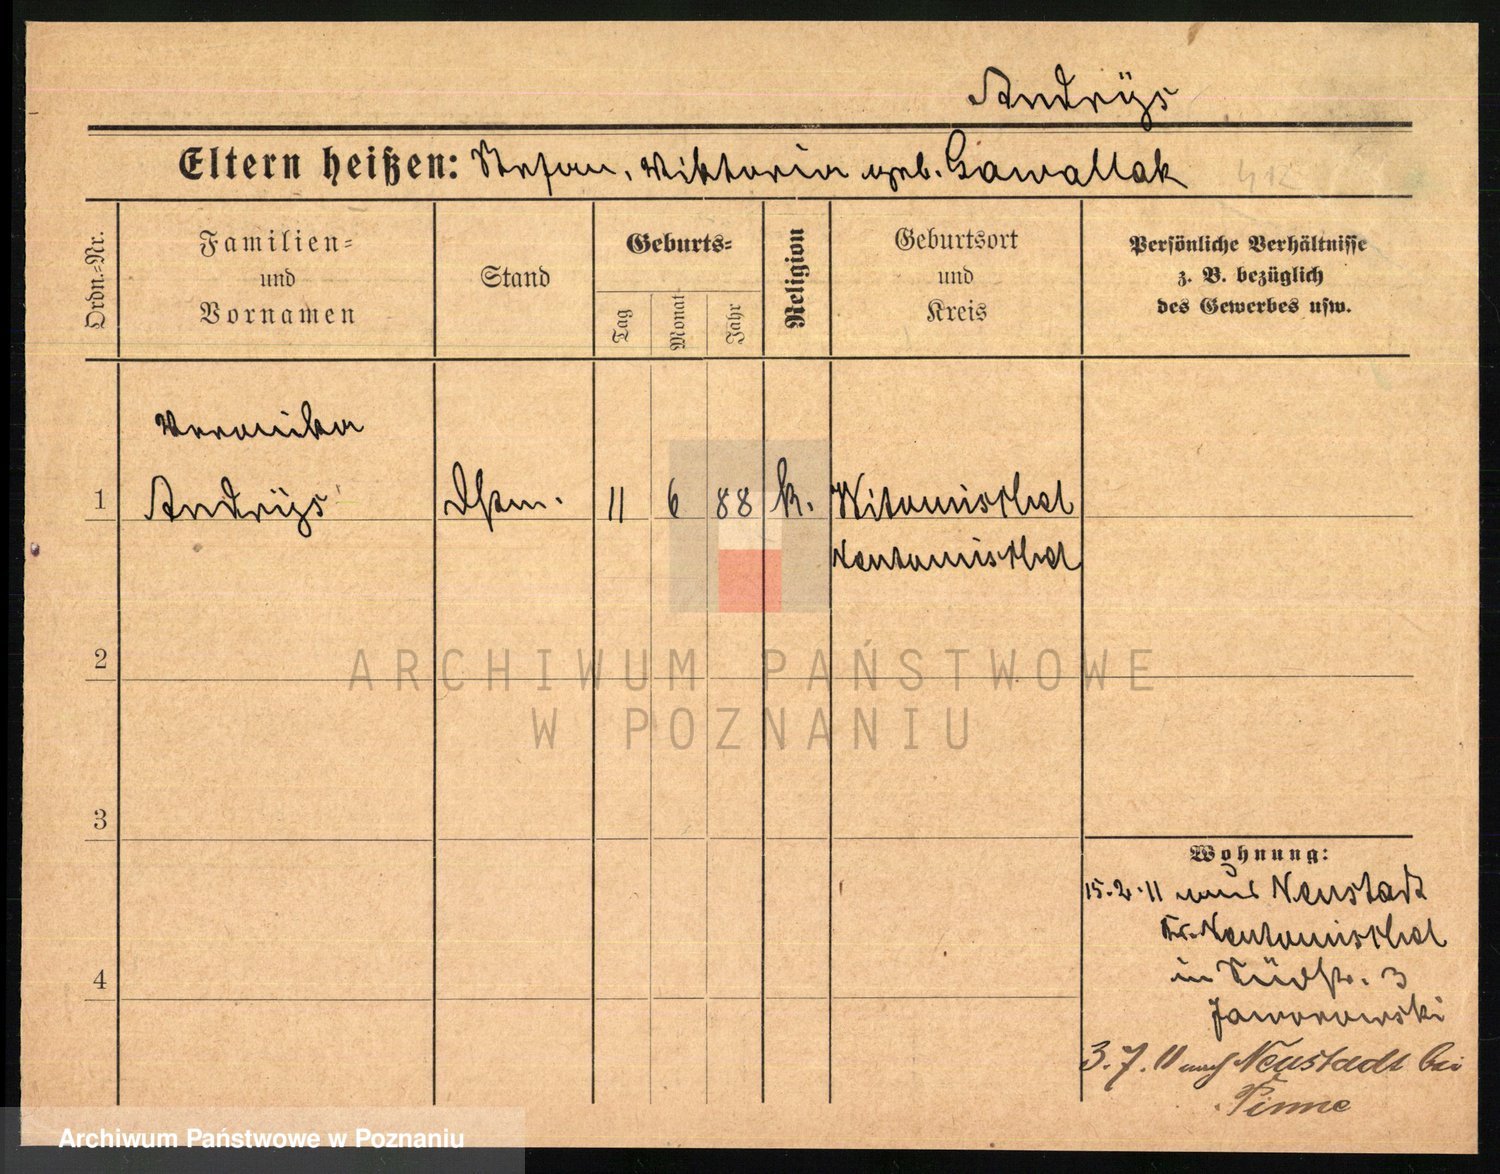 Andrÿs
Eltern heißen: Stefan, Viktoria geb. Gawallak
Ordn.-Nr.
Familien-
und
Vornamen
Stand
Geburts-
Tag
Monat
Jahr
Religion
Geburtsort
und
Kreis
Persönliche Verhältnisse
z. B. bezüglich
des Gewerbes usw.
Veronika
1 Andrÿs Dstm. 11 6 88 k. Witomisthal
Neutomisthel
2
3
4
Wohnung:
15.2.11 aus Neustadt
Kr. Neutomisthel
in Südstr. 3
Jaworowski
3.7.11 auf Neustadt bei
Pinne
ARCHIWUM PAŃSTWOWE
W POZNANIU
Archiwum Państwowe w Poznaniu